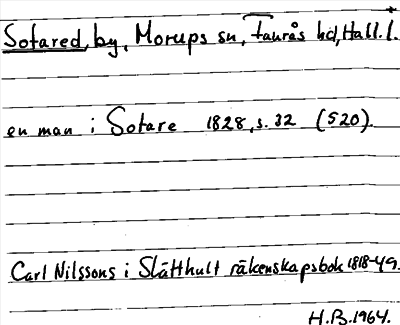 Sotared, by, Morups sn, Faurås hd, Hall. l.
en man i Sotare 1828, s. 32 (520)
Carl Nilssons i Slätthult räkenskapsbok 1818-49.
H.B. 1964.